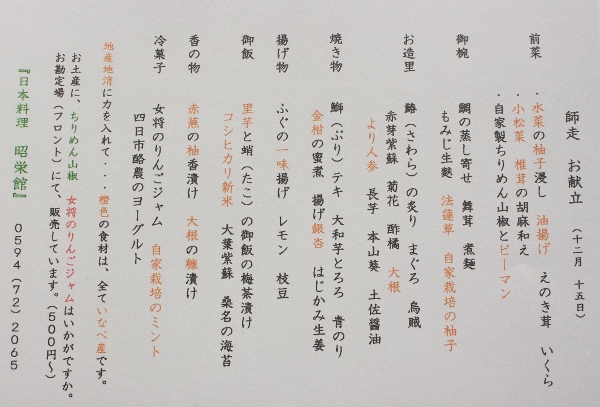 師走　お献立　（十二月　十五日）
前菜　・水菜の柚子浸し　油揚げ　えのき茸　いくら
・小松菜　椎茸の胡麻和え
・自家製ちりめん山椒とピーマン
御椀　鯛の蒸し寄せ　舞茸　煮麺
もみじ生麩　法蓮草　自家栽培の柚子
お造里　鰆（さわら）の炙り　まぐろ　烏賊
赤芽紫蘇　菊花　酢橘　大根
より人参　長芋　本山葵　土佐醤油
焼き物　鰤（ぶり）テキ　大和芋とろろ　青のり
金柑の蜜煮　揚げ銀杏　はじかみ生姜
揚げ物　ふぐの一味揚げ　レモン　枝豆
御飯　里芋と蛸（たこ）の御飯の梅茶漬け
コシヒカリ新米　大葉紫蘇　桑名の海苔
香の物　赤蕪の柚香漬け　大根の糠漬け
冷菓子　女将のりんごジャム　自家栽培のミント
四日市酪農のヨーグルト
地産地消に力を入れて・・・橙色の食材は、全ていなべ産です。
お土産に、ちりめん山椒　女将のりんごジャムはいかがですか。
お勘定場（フロント）にて、販売しています。（５００円～）
『日本料理　昭栄館』　０５９４（７２）２０６５